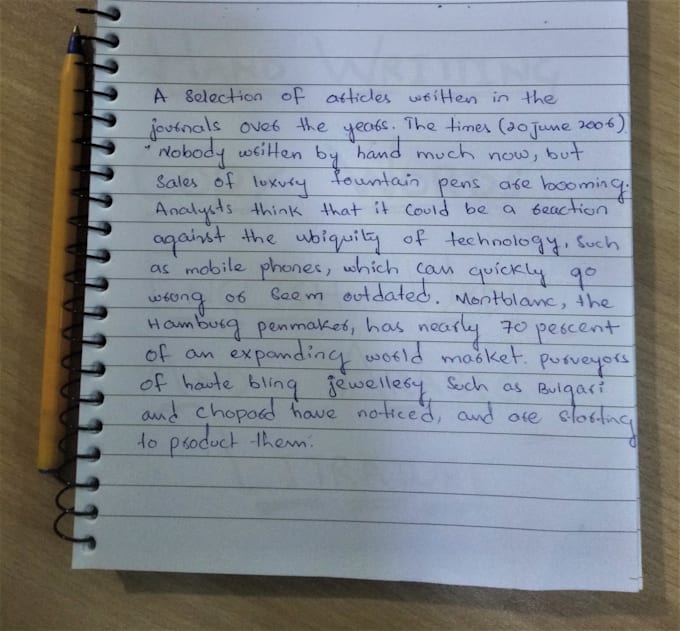 A Selection of articles written in the
journals over the years. The times (20 June 2006)
"Nobody written by hand much now, but
Sales of luxury fountain pens are booming.
Analysts think that it could be a reaction
against the ubiquity of technology, Such
as mobile phones, which can quickly go
wrong or Seem outdated. Montblanc, the
Hamburg penmaker, has nearly 70 pescent
of an expanding world market. purveyors
of haute bling jewellery, Such as Bulgari
and chopard have noticed, and are starting
to product them.